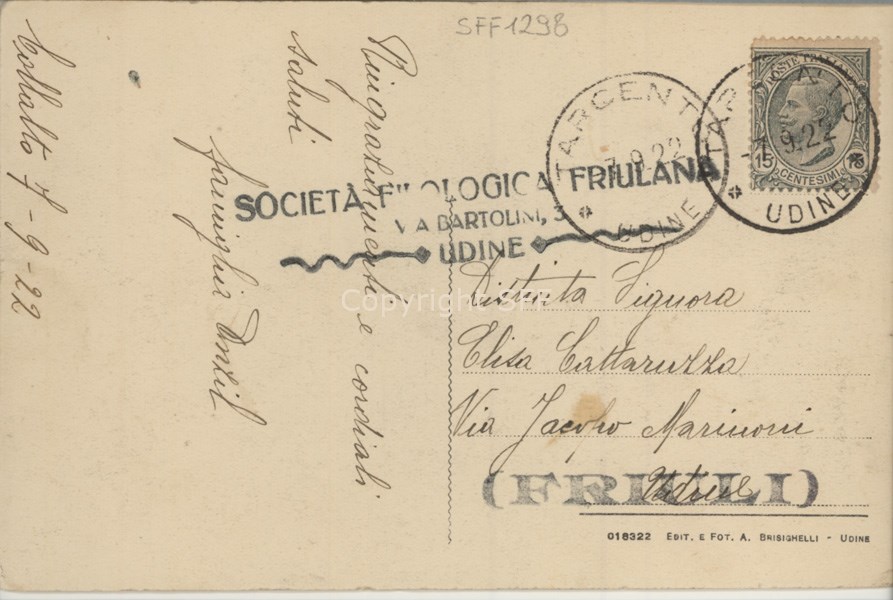 SFF1298
Collalto 7-9-22
Ringraziamenti e cordiali
saluti
famiglia Anzil
SOCIETÀ FILOLOGICA FRIULANA
VIA BARTOLINI, 3
UDINE
TARCENTO
7.9.22
UDINE
TARCENTO
-7.9.22
UDINE
POSTE ITALIANE
15 15
CENTESIMI
Copyright SFF
Distinta Signora
Elisa Cattaruzza
Via Jacopo Marinoni
Udine
(FRIULI)
018322 EDIT. E FOT. A. BRISIGHELLI - UDINE